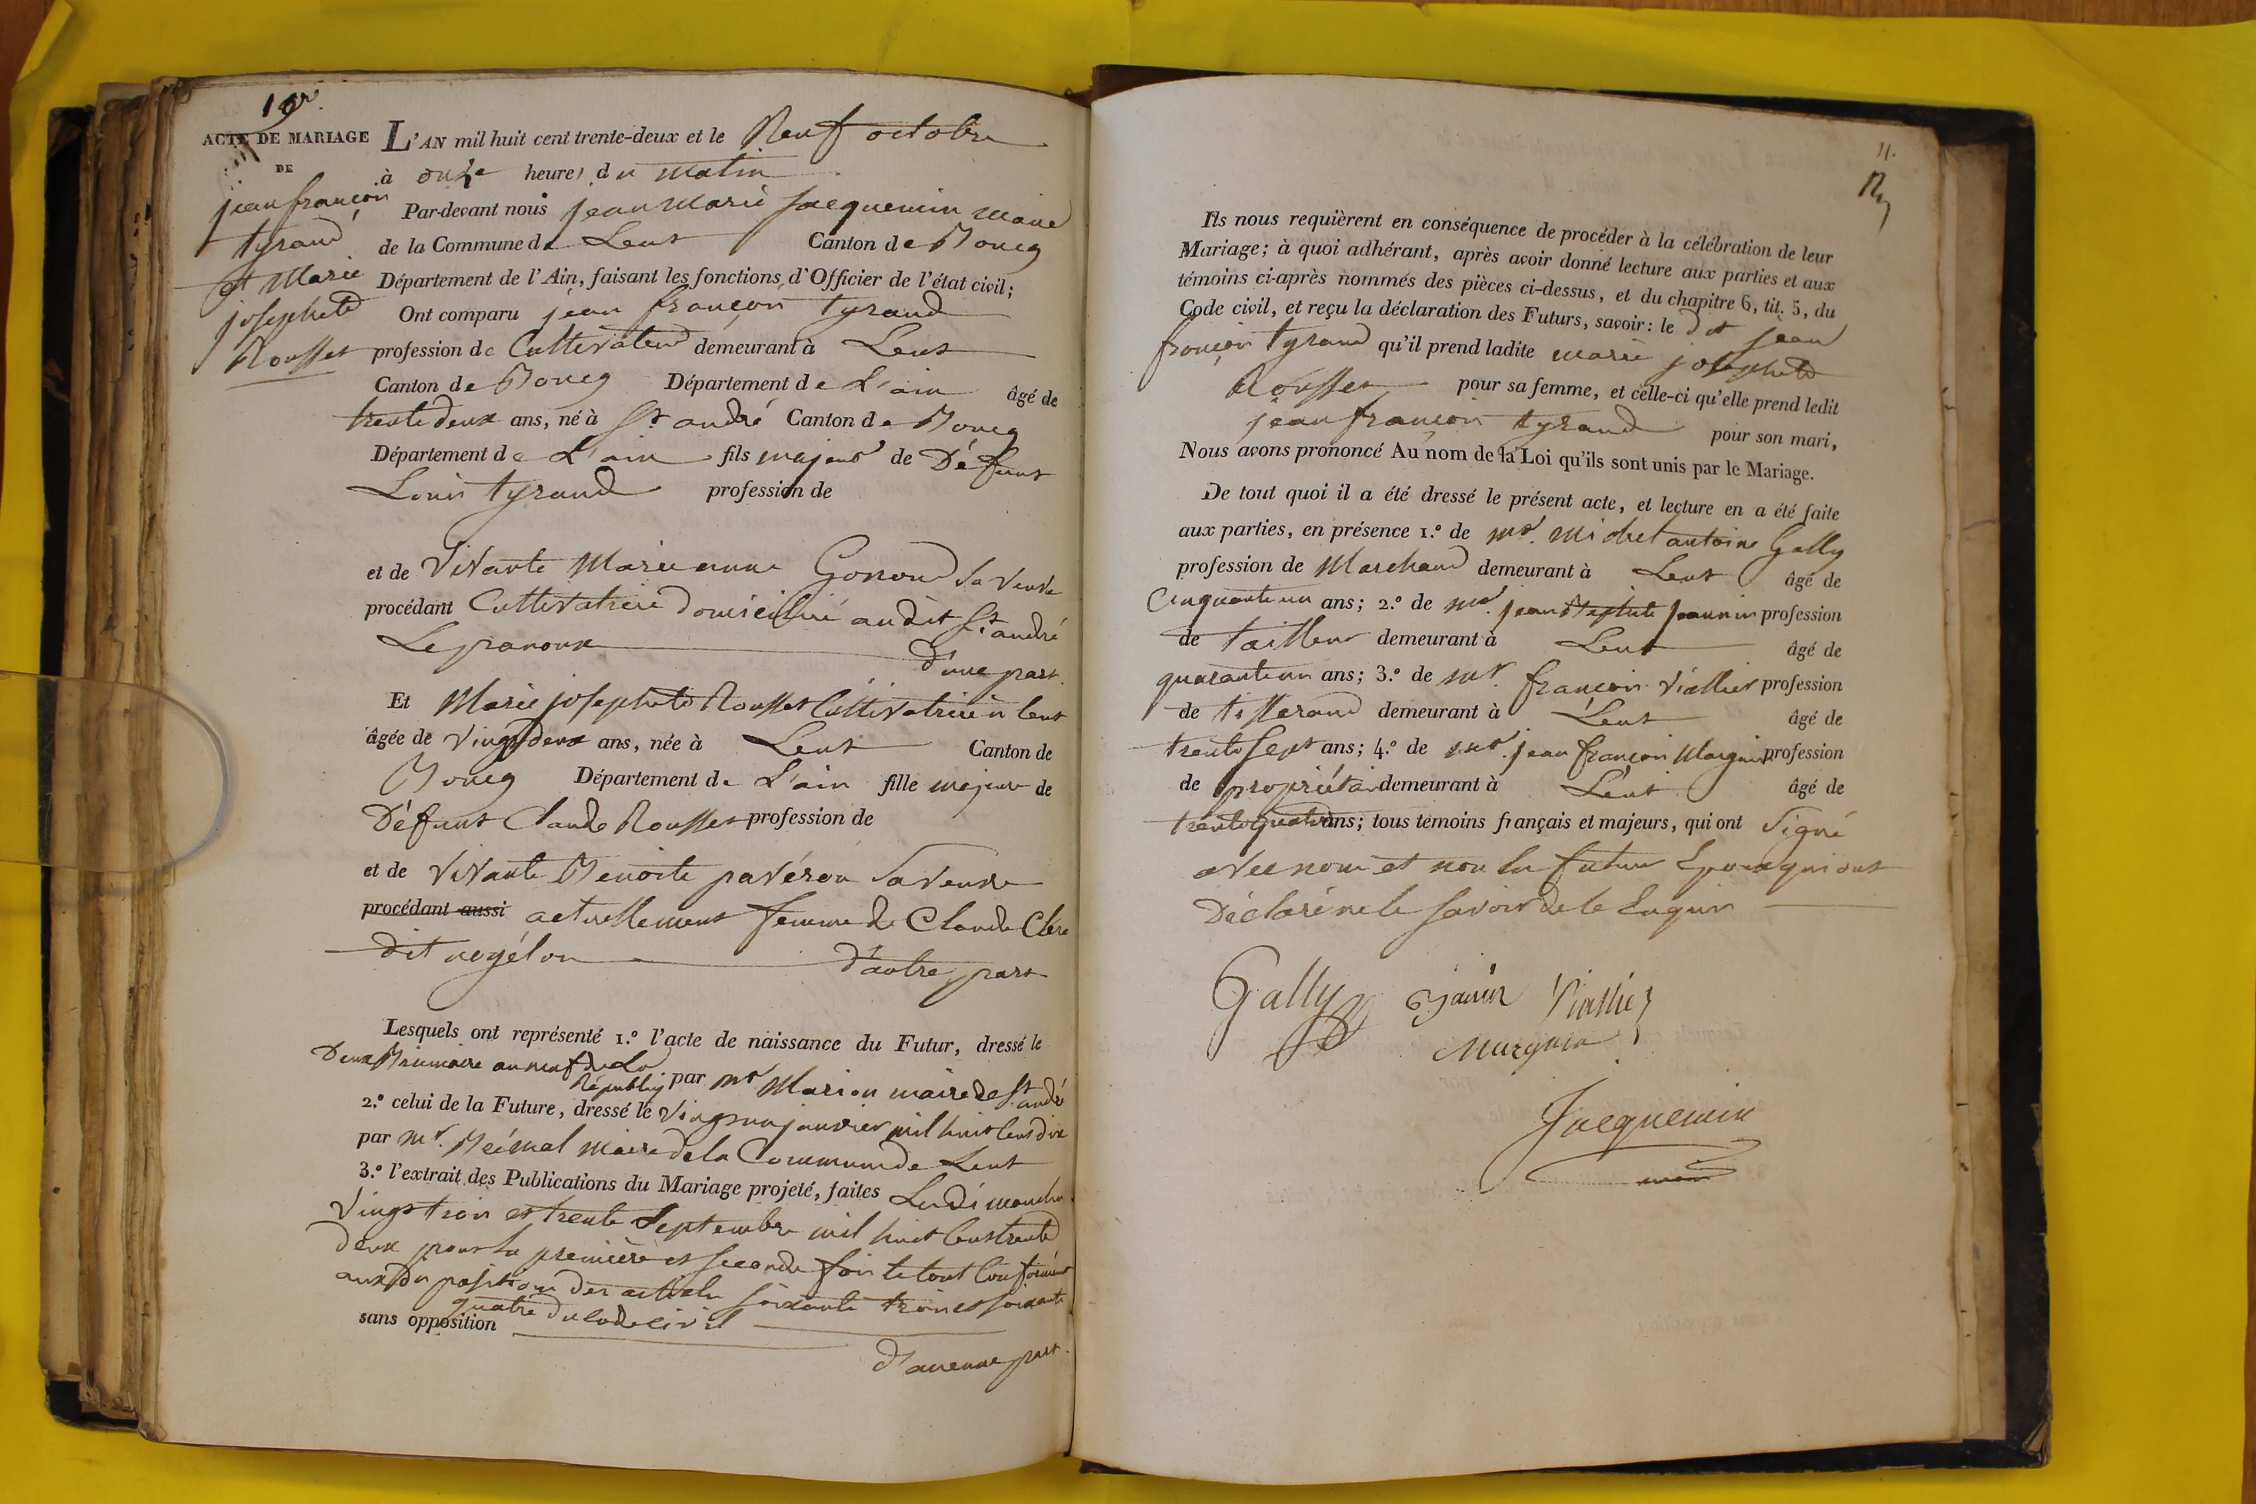 ACTE DE MARIAGE
DE
jean françois
tyrand
et Marie
josephete
Rousset
L'AN mil huit cent trente-deux et le Neuf octobre
à onze heures du matin
Par-devant nous jean Marie Jacquemin Maire
de la Commune de Lent Canton de Bourg
Département de l'Ain, faisant les fonctions d'Officier de l'état civil;
Ont comparu jean françois tyrand
profession de Cultivateur demeurant à Lent
Canton de Bourg Département de L'ain âgé de
trente deux ans, né à St andré Canton de Bourg
Département de L'ain fils majeur de Défunt
Louis tyrand profession de
et de Vivante Marie anne Gonond sa veuve
procédant Cultivatrice domiciliée audit St andré
Lepanoux d'une part.
Et Marie josephete Rousset Cultivatrice à lent
âgée de vingt deux ans, née à Lent Canton de
Bourg Département de L'ain fille majeure de
Défunt Claude Rousset profession de
et de Vivante Benoite pavérou sa veuve
procédant aussi actuellement femme de Claude Clere
dit d'autre part
Lesquels ont représenté 1.º l'acte de naissance du Futur, dressé le
Deux Brumaire an neuf de La
Républiq par Mr Marion maire de St andré
2.º celui de la Future, dressé le Vingt un janvier mil huit Cent dix
par Mr. maire de la Commune de Lent
3.º l'extrait des Publications du Mariage projeté, faites Les dimanches
Vingt trois et trente Septembre mil huit Cent trente
deux pour la première et seconde fois le tout Conformément
aux dispositions des articles soixante trois et soixante
quatre du Code civil
sans opposition
d'aucune part.
11.
Ils nous requièrent en conséquence de procéder à la célébration de leur
Mariage; à quoi adhérant, après avoir donné lecture aux parties et aux
témoins ci-après nommés des pièces ci-dessus, et du chapitre 6, tit. 5, du
Code civil, et reçu la déclaration des Futurs, savoir: le dit jean
françois tyrand qu'il prend ladite marie josephete
Rousset pour sa femme, et celle-ci qu'elle prend ledit
jean françois tyrand pour son mari,
Nous avons prononcé Au nom de la Loi qu'ils sont unis par le Mariage.
De tout quoi il a été dressé le présent acte, et lecture en a été faite
aux parties, en présence 1.º de Mr. Michel antoine Gally
profession de Marchand demeurant à Lent âgé de
Cinquante un ans; 2.º de Mr. jean Baptiste Jeannin profession
de tailleur demeurant à Lent âgé de
quarante un ans; 3.º de Mr. françois Viallier profession
de tisserand demeurant à Lent âgé de
trente Sept ans; 4.º de Mr. jean françois Marguin profession
de propriétaire demeurant à Lent âgé de
trente quatre ans; tous témoins français et majeurs, qui ont Signé
avec nous et non les futurs Epoux qui ont
Déclaré ne le savoir de le Enquis
Gally Janin Viallier
Marguin
Jacquemin
maire